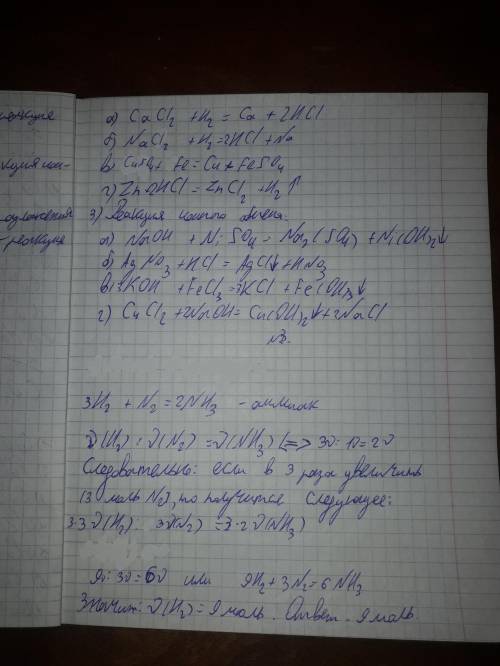 а) CaCl2 + H2 = Ca + 2HCl
б) NaCl2 + H2=2HCl + Na
в) CuSO4 + Fe = Cu + FeSO4
г) Zn + 2HCl = ZnCl2 + H2↑
3) Реакция ионного обмена:
а) NaOH + NiSO4 = Na2(SO4) + Ni(OH)2↓
б) AgNO3 + HCl = AgCl↓ + HNO3
в) 3KOH + FeCl3 = 3KCl + Fe(OH)3↓
г) CuCl2 + 2NaOH = Cu(OH)2↓ + 2NaCl
№3.
3H2 + N2 = 2NH3 - аммиак
ν(H2) : ν(N2) = ν(NH3) (=> 3ν : 1ν = 2ν
Следовательно: если в 3 раза увеличить
(3 моль N2), то получится следующее:
3·3ν(H2) 3ν(N2) = 3·2ν(NH3)
9ν : 3ν = 6ν или 9H2 + 3N2 = 6NH3
Значит: ν(H2) = 9 моль. Ответ - 9 моль
реакция